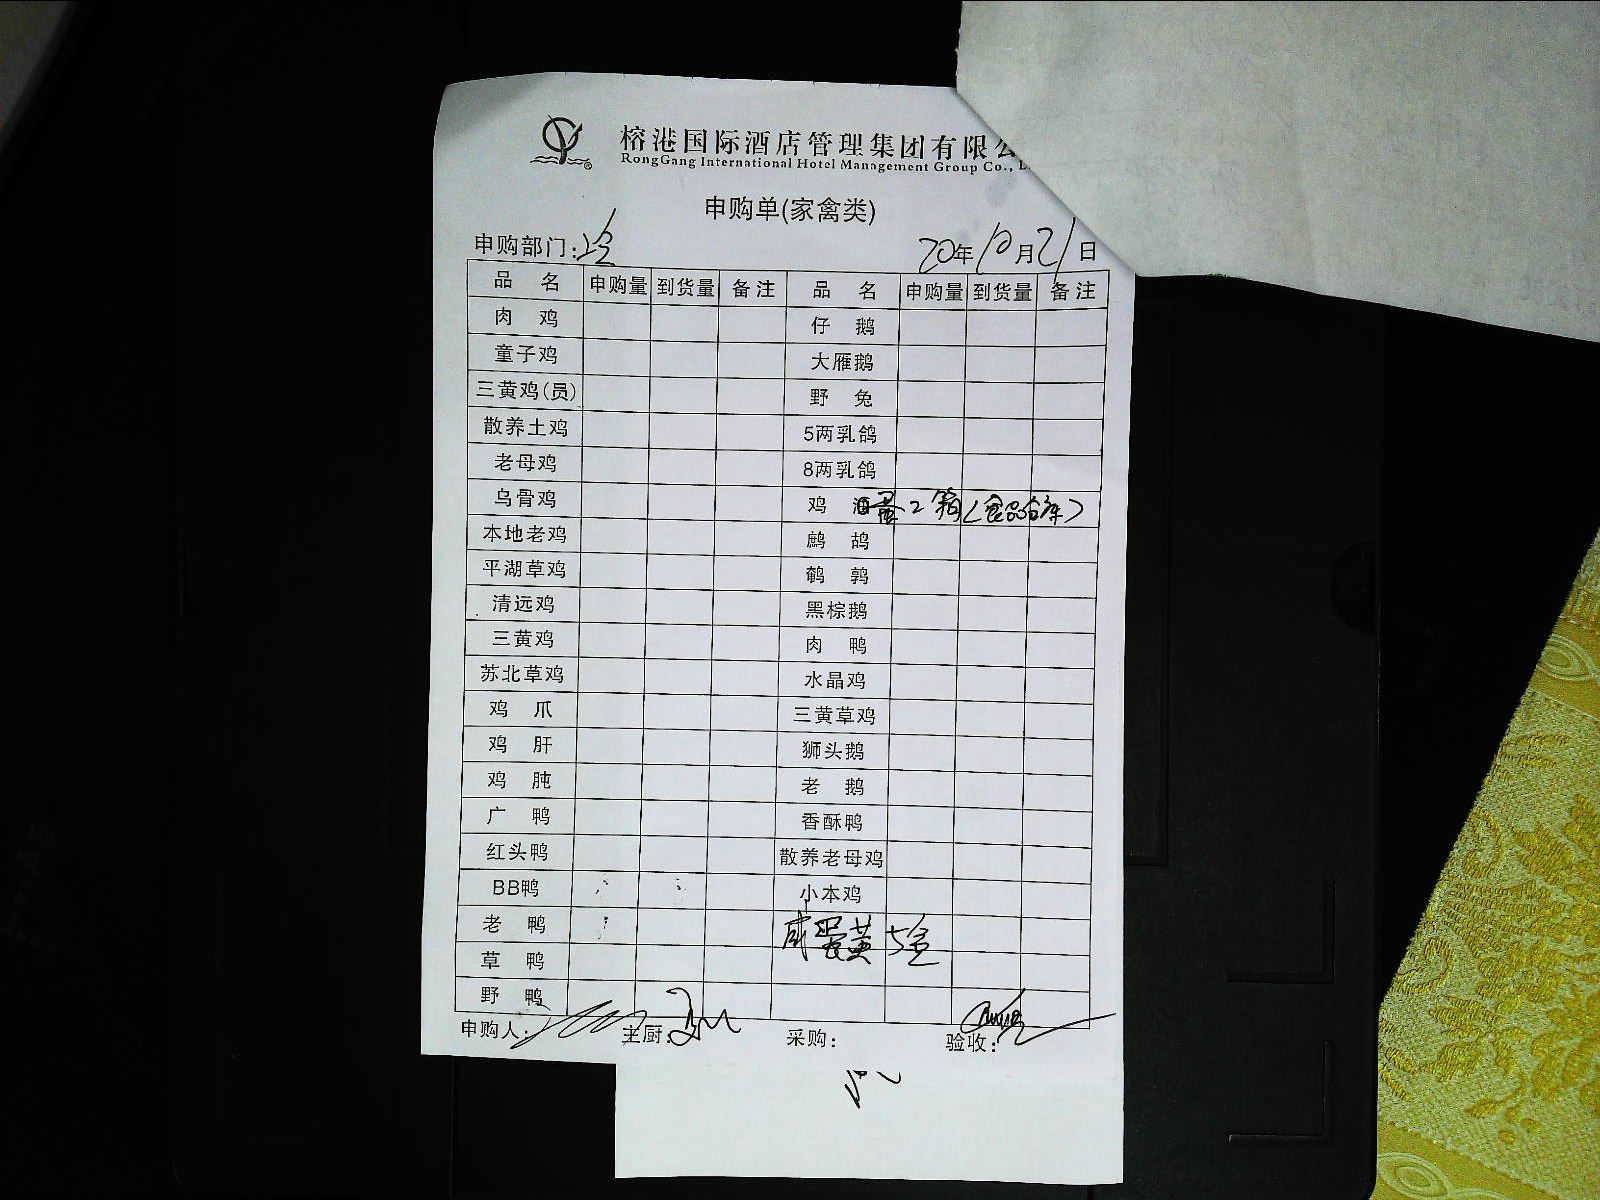 榕港国际酒店管理集团有限公
RongGang International Hotel Management Group Co.,
申购单(家禽类)
申购部门:
20年10月21日
品 名 申购量 到货量 备注 品 名 申购量 到货量 备注
肉 鸡 仔 鹅
童子鸡 大雁鹅
三黄鸡(员) 野 兔
散养土鸡 5两乳鸽
老母鸡 8两乳鸽
乌骨鸡 鸡 蛋2箱(食品仓库)
本地老鸡 鹧 鸪
平湖草鸡 鹌 鹑
清远鸡 黑棕鹅
三黄鸡 肉 鸭
苏北草鸡 水晶鸡
鸡 爪 三黄草鸡
鸡 肝 狮头鹅
鸡 肫 老 鹅
广 鸭 香酥鸭
红头鸭 散养老母鸡
BB鸭 小本鸡
老 鸭 咸蛋黄 5盒
草 鸭
野 鸭
申购人: 主厨: 采购: 验收: